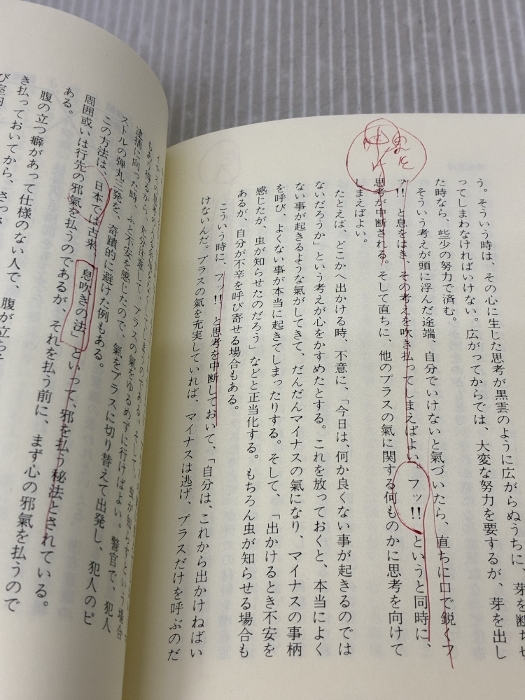 う。そういう時は、その心に生じた思考が黒雲のように広がらぬうちに、芽を断
ってしまわなければいけない。広がってからでは、大変な努力を要するが、芽を出し
た時なら、些少の努力で済む。
そういう考えが頭に浮んだ途端、自分でいけないと氣づいたら、直ちに口で鋭くフ
ッ!! と息をはき、その考えを吹き払ってしまえばよい。フッ!! というと同時に、
思考が中断される。そして直ちに、他のプラスの氣に関する何ものかに思考を向けて
しまえばよい。
たとえば、どこかへ出かける時、不意に、「今日は、何か良くない事が起きるのでは
ないだろうか」という考えが心をかすめたとする。これを放っておくと、本当によく
ない事が起きるような氣がしてきて、だんだんマイナスの氣になり、マイナスの事柄
を呼び、よくない事が本当に起きてしまったりする。そして、「出かけるとき不安を
感じたが、虫が知らせたのだろう」などと正当化する。もちろん虫が知らせる場合も
あるが、自分が不幸を呼び寄せる場合もある。
こういう時に、「フッ!!」と思考を中断しておいて、「自分は、これから出かけねばい
けないんだ。プラスの氣を充実していれば、マイナスは逃げ、プラスだけを呼ぶのだ
プラスの氣をゆるめずに行けばよい。警官で、犯人
逮捕に向った時、ふと不安を感じたので、氣をプラスに切り替えて出発し、犯人のピ
ストルの弾丸一発を、奇蹟的に避けた例もある。
この方法は、日本では古来、「息吹きの法」といって、邪を払う秘法とされている。
周囲或いは行先の邪氣を払うのであるが、それを払う前に、まず心の邪氣を払うので
ある。
腹の立つ癖があって仕様のない人で、腹が立ちそ
き払っておいてから、さっ